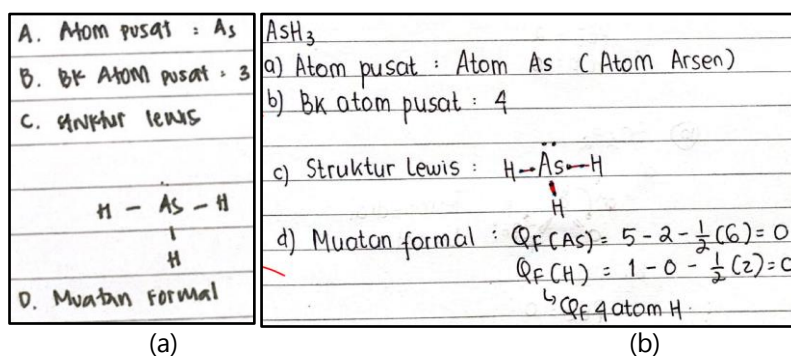 A. Atom pusat : As
B. BK Atom pusat : 3
C. struktur lewis
H - As - H
H
D. Muatan Formal
(a)
AsH3
a) Atom pusat : Atom As ( Atom Arsen)
b) BK atom pusat : 4
c) Struktur Lewis : H-As-H
H
d) Muatan formal : QF(As) = 5 - 2 - 1/2 (6) = 0
QF(H) = 1 - 0 - 1/2 (2) = 0
↳ QF 4 atom H.
(b)